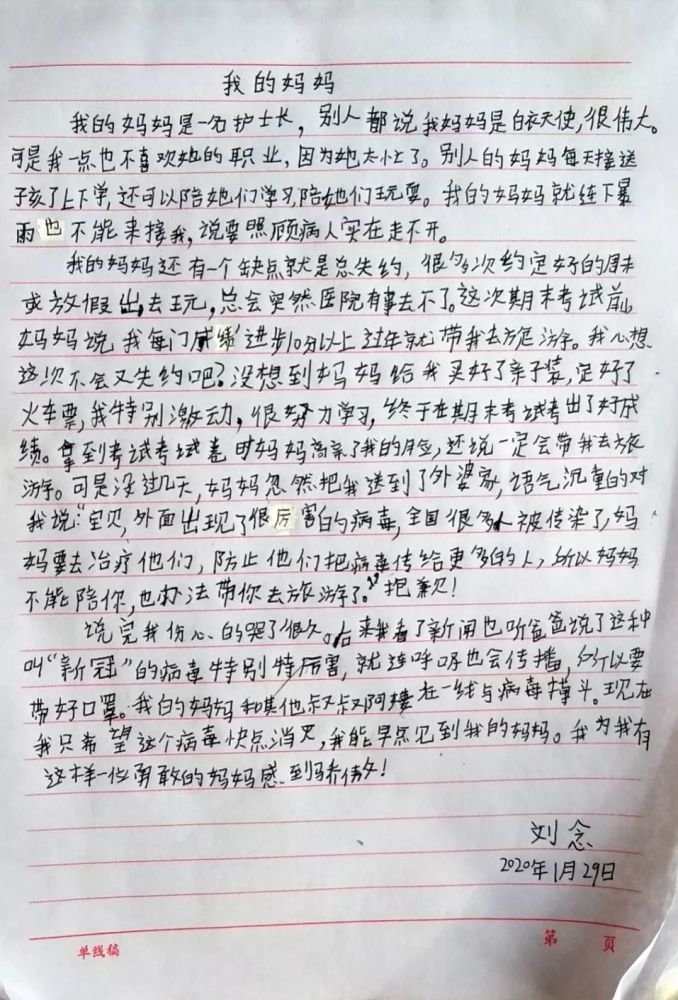 我的妈妈
我的妈妈是一名护士长，别人都说我妈妈是白衣天使，很伟大。
可是我一点也不喜欢她的职业，因为她太忙了。别人的妈妈每天接送
子孩了上下学，还可以陪她们学习，陪她们玩耍。我的妈妈就连下暴
雨也不能来接我，说要照顾病人实在走不开。
我的妈妈还有一个缺点就是总失约，很多次约定好的周末
或放假出去玩，总会突然医院有事去不了。这次期末考试前，
妈妈说我每门成绩进步10分以上过年就带我去旅游。我心想
这次不会又失约吧？没想到妈妈给我买好了亲子装，定好了
火车票，我特别激动，很努力学习，终于在期末考试考出了好成
绩。拿到考试考试卷时妈妈高亲了我的脸，还说一定会带我去旅
游。可是没过几天，妈妈忽然把我送到了外婆家，语气沉重的对
我说："宝贝，外面出现了很厉害的病毒，全国很多人被传染了，妈
妈要去治疗他们，防止他们把病毒传给更多的人，所以妈妈
不能陪你，也办法带你去旅游了。"抱歉！
说完我伤心的哭了很久。后来我看了新闻也听爸爸说了这种
叫"新冠"的病毒特别特厉害，就连呼吸也会传播，所以要
带好口罩。我的妈妈和其他叔叔阿姨在一线与病毒掉斗。现在
我只希望这个病毒快点消灭，我能早点见到我的妈妈。我为我有
这样一位勇敢的妈妈感到骄伟！
刘念
2020年1月29日
单线稿
第 页